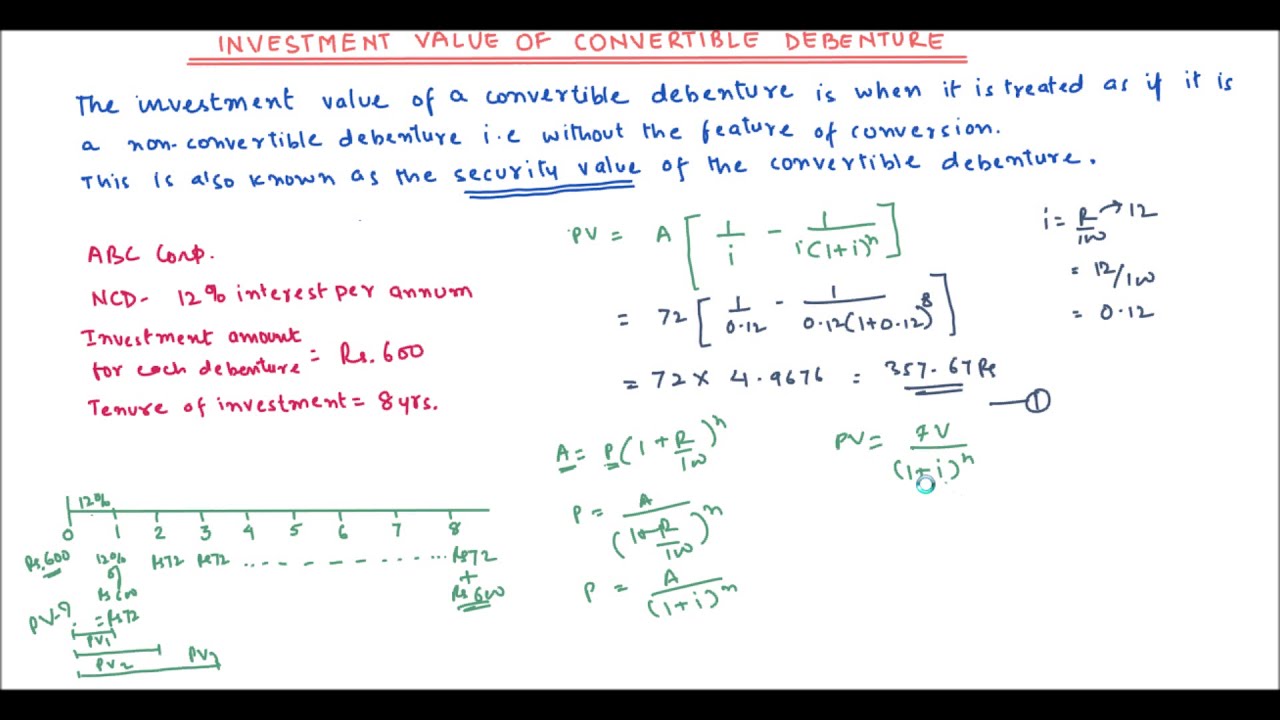 INVESTMENT VALUE OF CONVERTIBLE DEBENTURE
The investment value of a convertible debenture is when it is treated as if it is
a non-convertible debenture i.e without the feature of conversion.
This is also known as the security value of the convertible debenture.
ABC Corp.
NCD- 12% interest per annum
Investment amount
for each debenture = Rs. 600
Tenure of investment = 8 yrs.
PV = A [ 1/i - 1/i(1+i)^n ]
= 72 [ 1/0.12 - 1/0.12(1+0.12)^8 ]
= 72 × 4.9676 = 357.67 Rs
①
i = R/100 → 12
= 12/100
= 0.12
A = P(1+R/100)^n
P = A/(1+R/100)^n
P = A/(1+i)^n
PV = FV/(1+i)^n
12%
0 1 2 3 4 5 6 7 8
Rs.600 12% Rs72 Rs72 .. - - - - - - - ... Rs72
Rs600 + Rs600
PV-? = Rs72
PV1
PV2 PV3